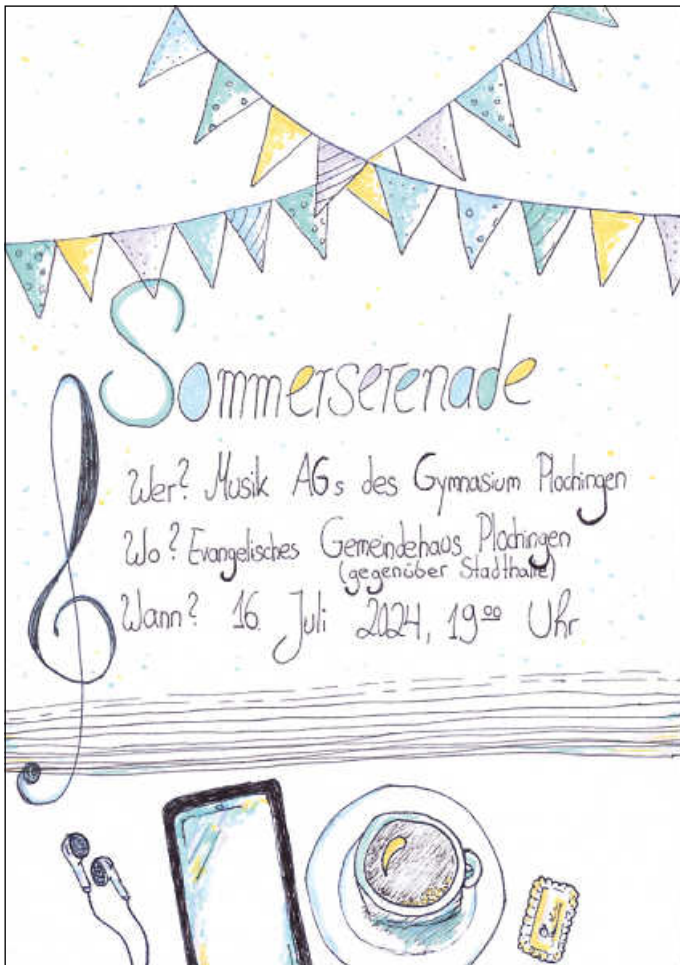 Sommerserenade
Wer? Musik AGs des Gymnasium Plochingen
Wo? Evangelisches Gemeindehaus Plochingen
(gegenüber Stadthalle)
Wann? 16. Juli 2024, 19⁰⁰ Uhr